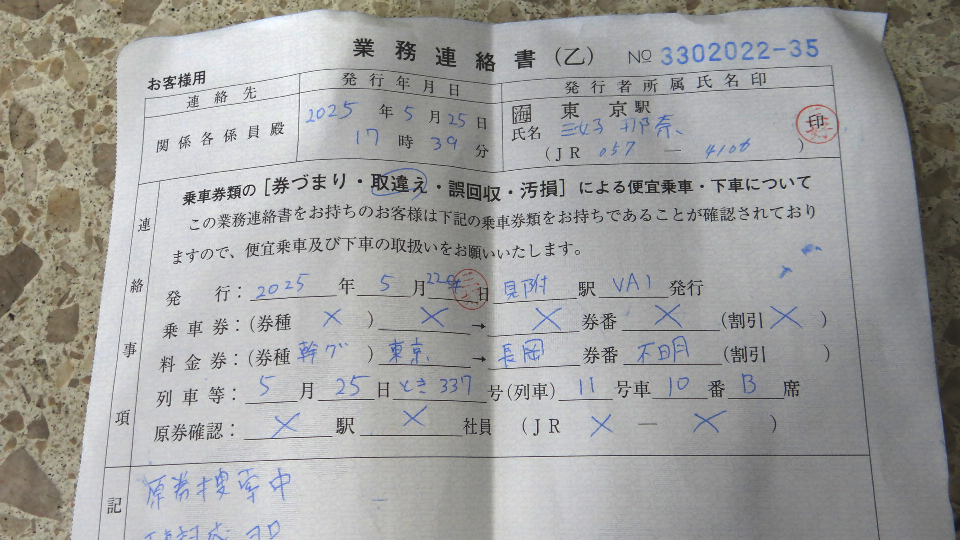 業務連絡書(乙) № 3302022-35
お客様用
連絡先 発行年月日 発行者所属氏名印
関係各係員殿 2025年5月25日 17時39分
海 東京駅
氏名 三好 那奈 印
(JR 057 ― 4106 )
連絡事項
乗車券類の[券づまり・取違え・誤回収・汚損]による便宜乗車・下車について
この業務連絡書をお持ちのお客様は下記の乗車券類をお持ちであることが確認されており
ますので、便宜乗車及び下車の取扱いをお願いいたします。
発行:2025年5月22日 見附駅 VA1発行
乗車券:(券種 × ) × → × 券番 × (割引 × )
料金券:(券種 幹グ ) 東京 → 長岡 券番 不明 (割引 )
列車等:5月25日とき337号(列車)11号車10番B席
原券確認: × 駅 × 社員 (JR × ― × )
記
原券捜索中